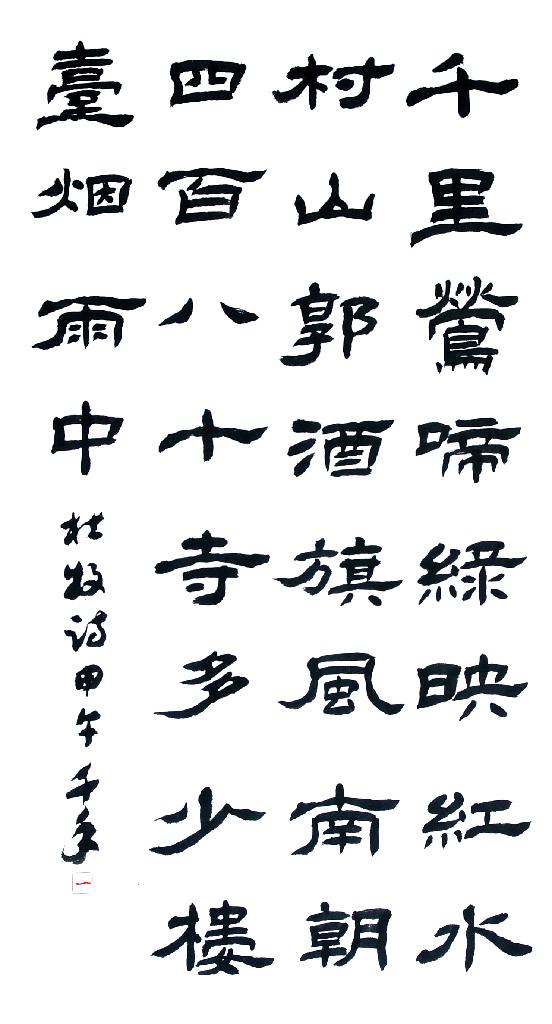 千里鶯啼綠映紅水
村山郭酒旗風南朝
四百八十寺多少樓
臺烟雨中
杜牧詩甲午千年
一